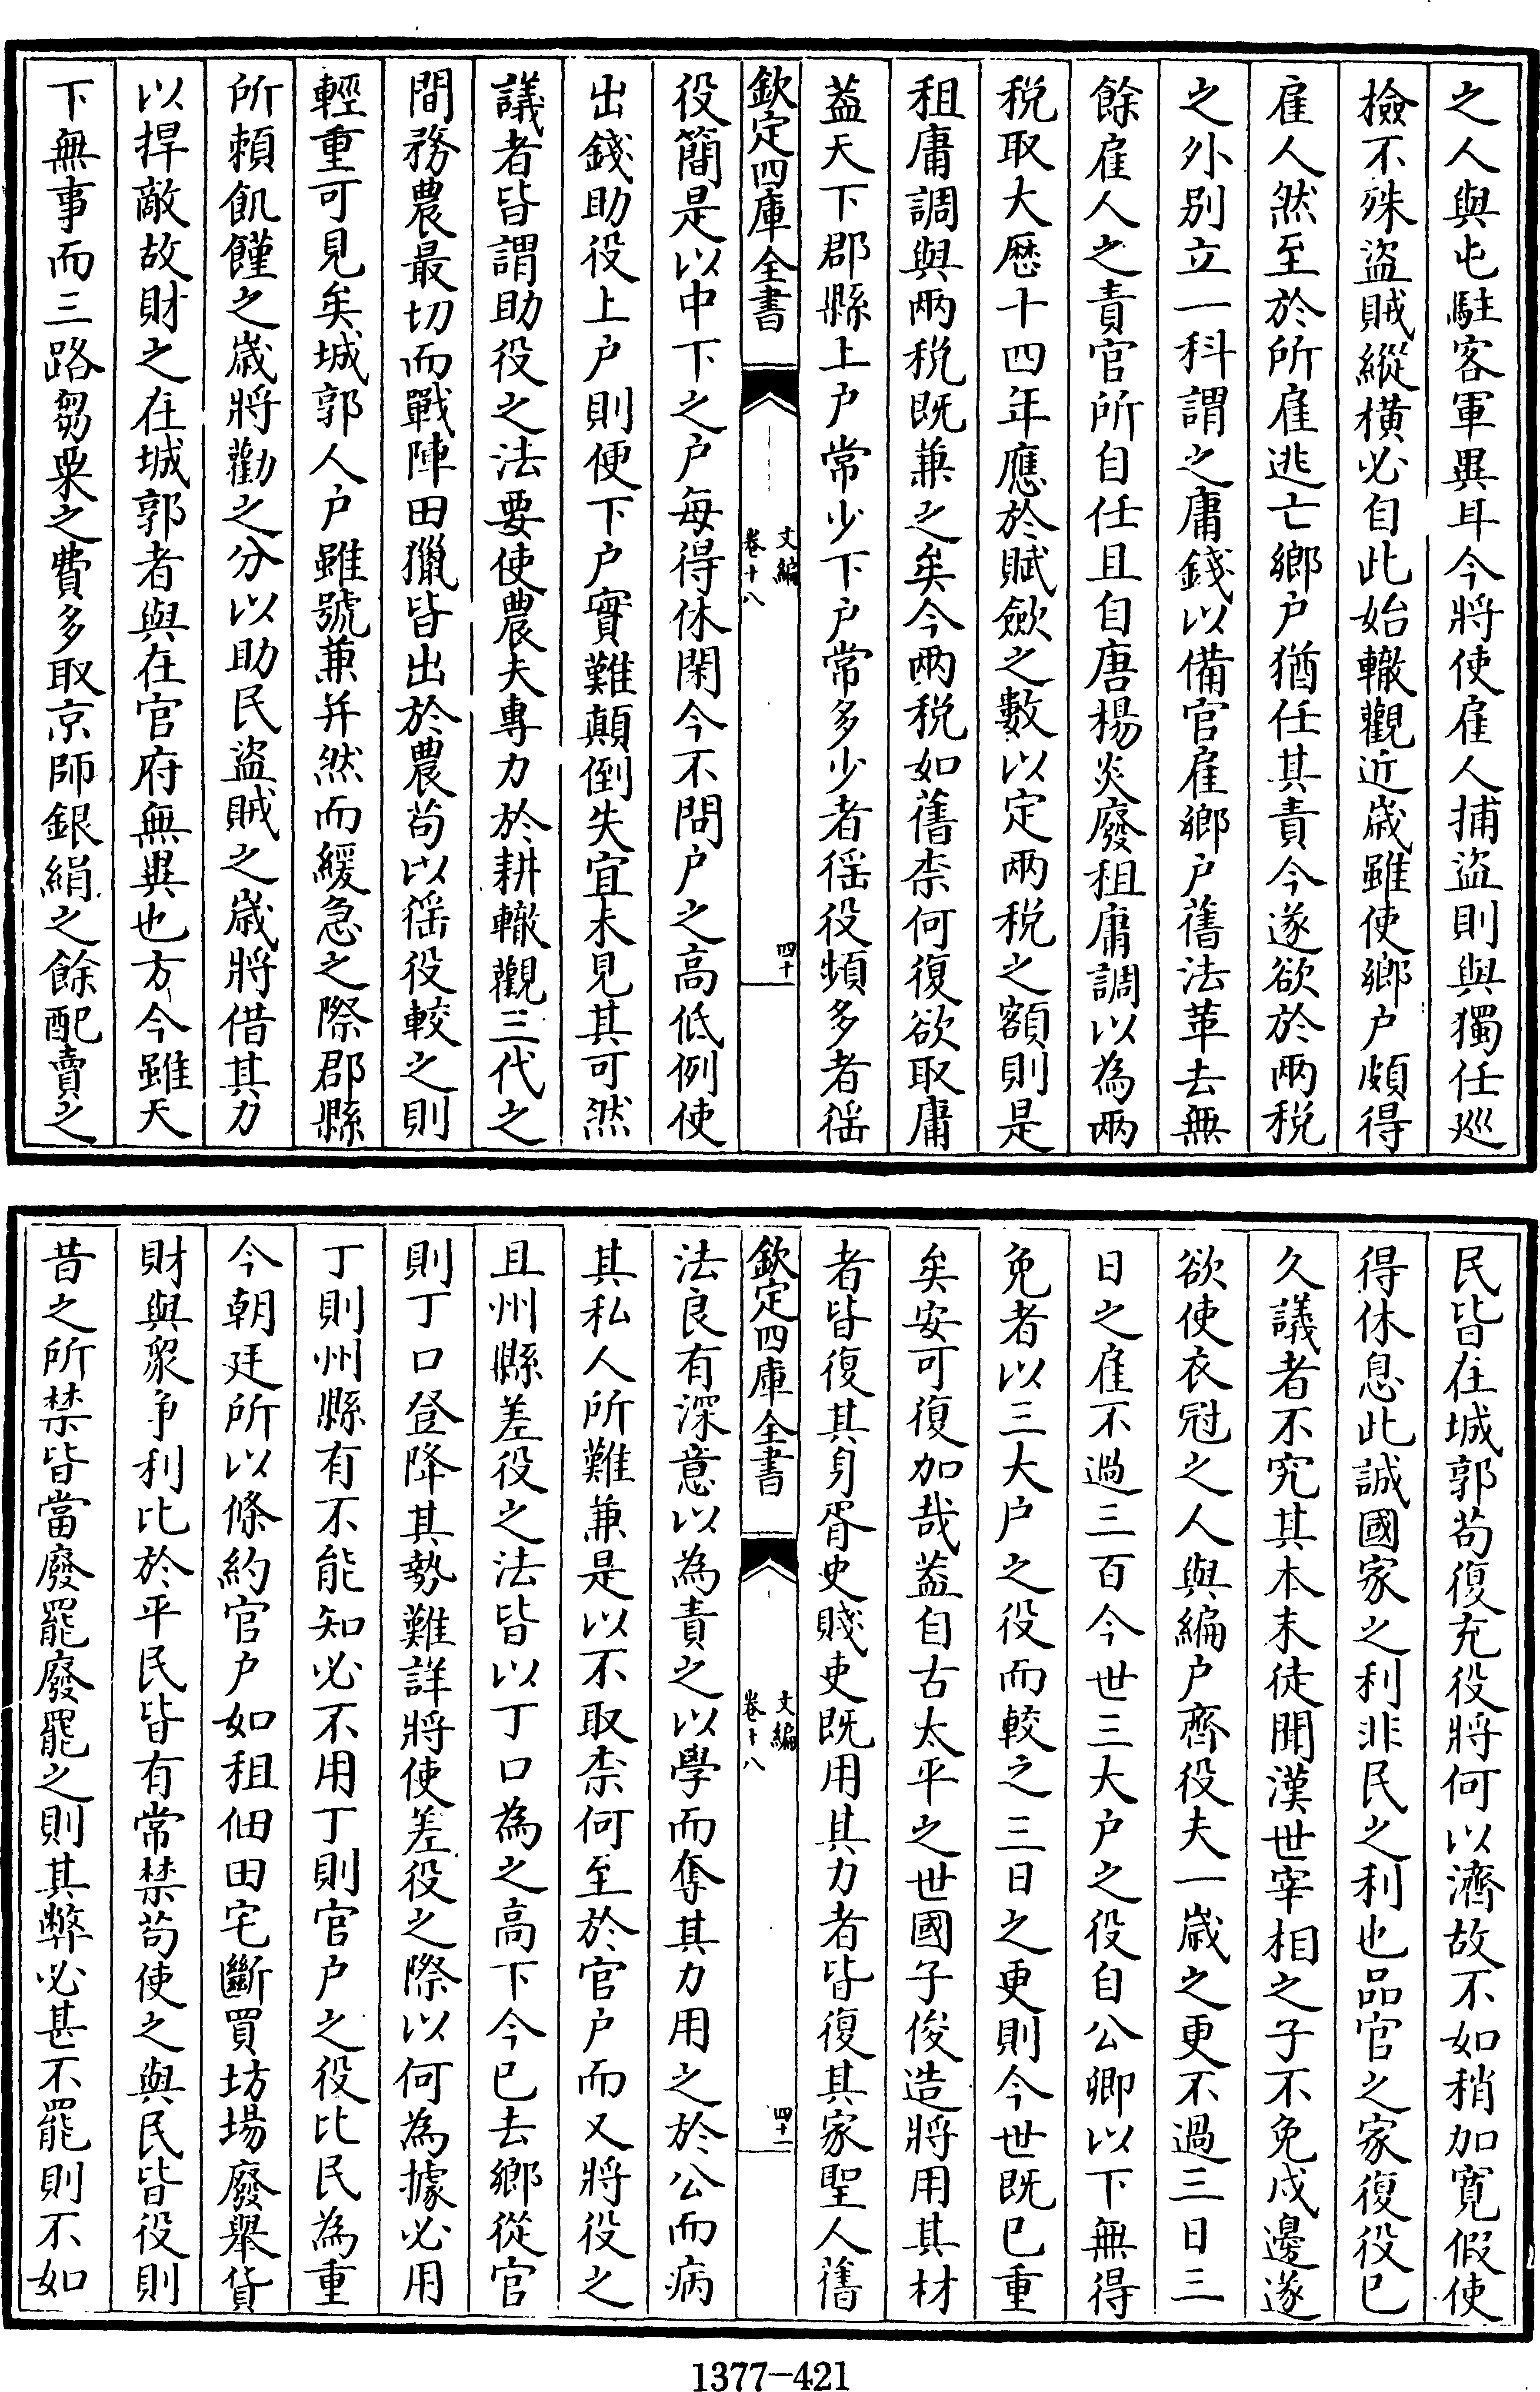 之人與屯駐客軍異耳今將使雇人捕盜則與獨任廵
檢不殊盜賊縱橫必自此始轍觀近歲雖使鄉户頗得
雇人然至於所雇逃亡鄉户猶任其責今遂欲於兩税
之外别立一科謂之庸錢以備官雇鄉户舊法革去無
餘雇人之責官所自任且自唐楊炎廢租庸調以為兩
税取大厯十四年應於賦歛之數以定兩税之額則是
租庸調與兩税既兼之矣今兩税如舊柰何復欲取庸
葢天下郡縣上户常少下户常多少者徭役頻多者徭
欽定四庫全書
文編
卷十八
四十
役簡是以中下之户每得休閑今不問户之高低例使
出錢助役上户則便下户實難顛倒失宜未見其可然
議者皆謂助役之法要使農夫專力於耕轍觀三代之
間務農最切而戰陣田獵皆出於農苟以徭役較之則
輕重可見矣城郭人户雖號兼并然而緩急之際郡縣
所賴飢饉之歲將勸之分以助民盜賊之歲將借其力
以捍敵故財之在城郭者與在官府無異也方今雖天
下無事而三路芻粟之費多取京師銀絹之餘配賣之
民皆在城郭苟復充役將何以濟故不如稍加寬假使
得休息此誠國家之利非民之利也品官之家復役已
久議者不究其本末徒聞漢世宰相之子不免戍邊遂
欲使衣冠之人與編户齊役夫一歲之更不過三日三
日之雇不過三百今世三大户之役自公卿以下無得
免者以三大户之役而較之三日之更則今世既已重
矣安可復加哉葢自古太平之世國子俊造將用其材
者皆復其身胥史賤吏既用其力者皆復其家聖人舊
欽定四庫全書
文編
卷十八
四十一
法良有深意以為責之以學而奪其力用之於公而病
其私人所難兼是以不取柰何至於官户而又將役之
且州縣差役之法皆以丁口為之高下今已去鄉從官
則丁口登降其勢難詳將使差役之際以何為據必用
丁則州縣有不能知必不用丁則官户之役比民為重
今朝廷所以條約官户如租佃田宅斷買坊場廢舉貨
財與衆争利比於平民皆有常禁苟使之與民皆役則
昔之所禁皆當廢罷廢罷之則其弊必甚不罷則不如
1377-421